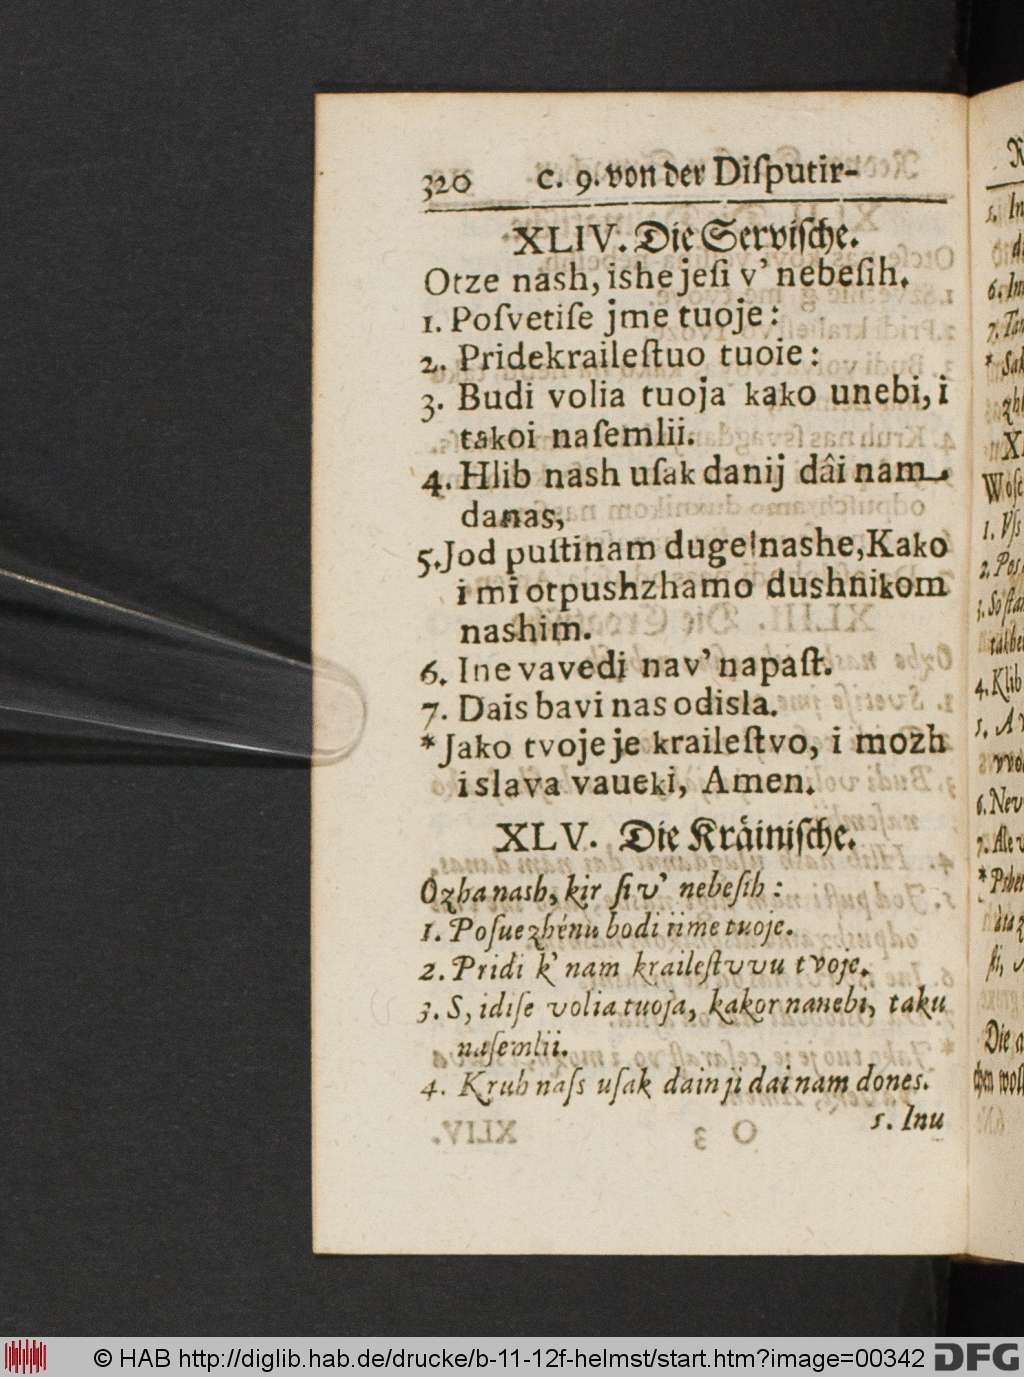 320 c. 9. von der Diſputir-
XLIV. Die Serviſche.
Otze nash, ishe jeſi v' nebeſih.
1. Poſvetiſe jme tuoje:
2. Pridekraileſtuo tuoie:
3. Budi volia tuoja kako unebi, i
takoi naſemlii.
4. Hlib nash uſak danij dâi nam
danas,
5. Jod puſtinam duge nashe, Kako
i mi otpushzhamo dushnikom
nashim.
6. Ine vavedi nav' napaſt.
7. Dais bavi nas odisla.
* Jako tvoje je kraileſtvo, i mozh
i slava vaueki, Amen.
XLV. Die Kräiniſche.
Ozha nash, kir ſi v' nebeſih:
1. Poſuezhénu bodi iime tuoje.
2. Pridi k' nam kraileſtvvu tvoje.
3. S, idiſe volia tuoja, kakor nanebi, taku
naſemlii.
4. Kruh naſs uſak dainji dai nam dones.
5. Inu
5. In
6. In
7. Ta
* Sak
zh
X
Woſe
1. Vſs
2. Pos
3. So ſta
takbe
4. Klib
5. A v
vvo
6. Nev
7. Ale v
* Pſbe
du z
ſi,
Die a
chen woll
© HAB http://diglib.hab.de/drucke/b-11-12f-helmst/start.htm?image=00342 DFG